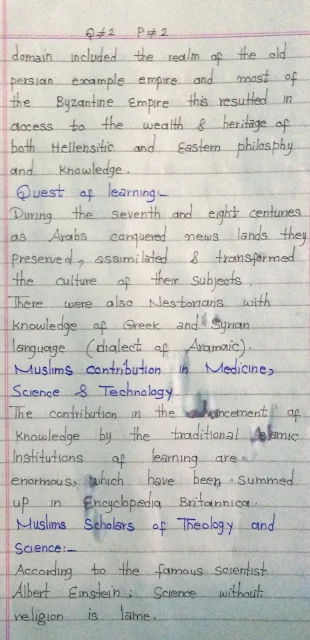 Q≠2 P≠2
domain included the realm of the old
persian example empire and most of
the Byzantine Empire this resulted in
access to the wealth & heritage of
both Hellensitic and Eastern philosphy
and knowledge.
Quest of learning:-
During the seventh and eight centuries
as Arabs conquered news lands they
preserved, assimilated & transformed
the culture of their subjects.
There were also Nestorians with
knowledge of Greek and Syrian
language (dialect of Aramaic).
Muslims contribution in Medicine,
Science & Technology.
The contribution in the advancement of
knowledge by the traditional Islamic
Institutions of learning are
enormous, which have been summed
up in Encyclopedia Britannica.
Muslims Scholars of Theology and
Science:-
According to the famous scientist
Albert Einstein: Science without
religion is lame.